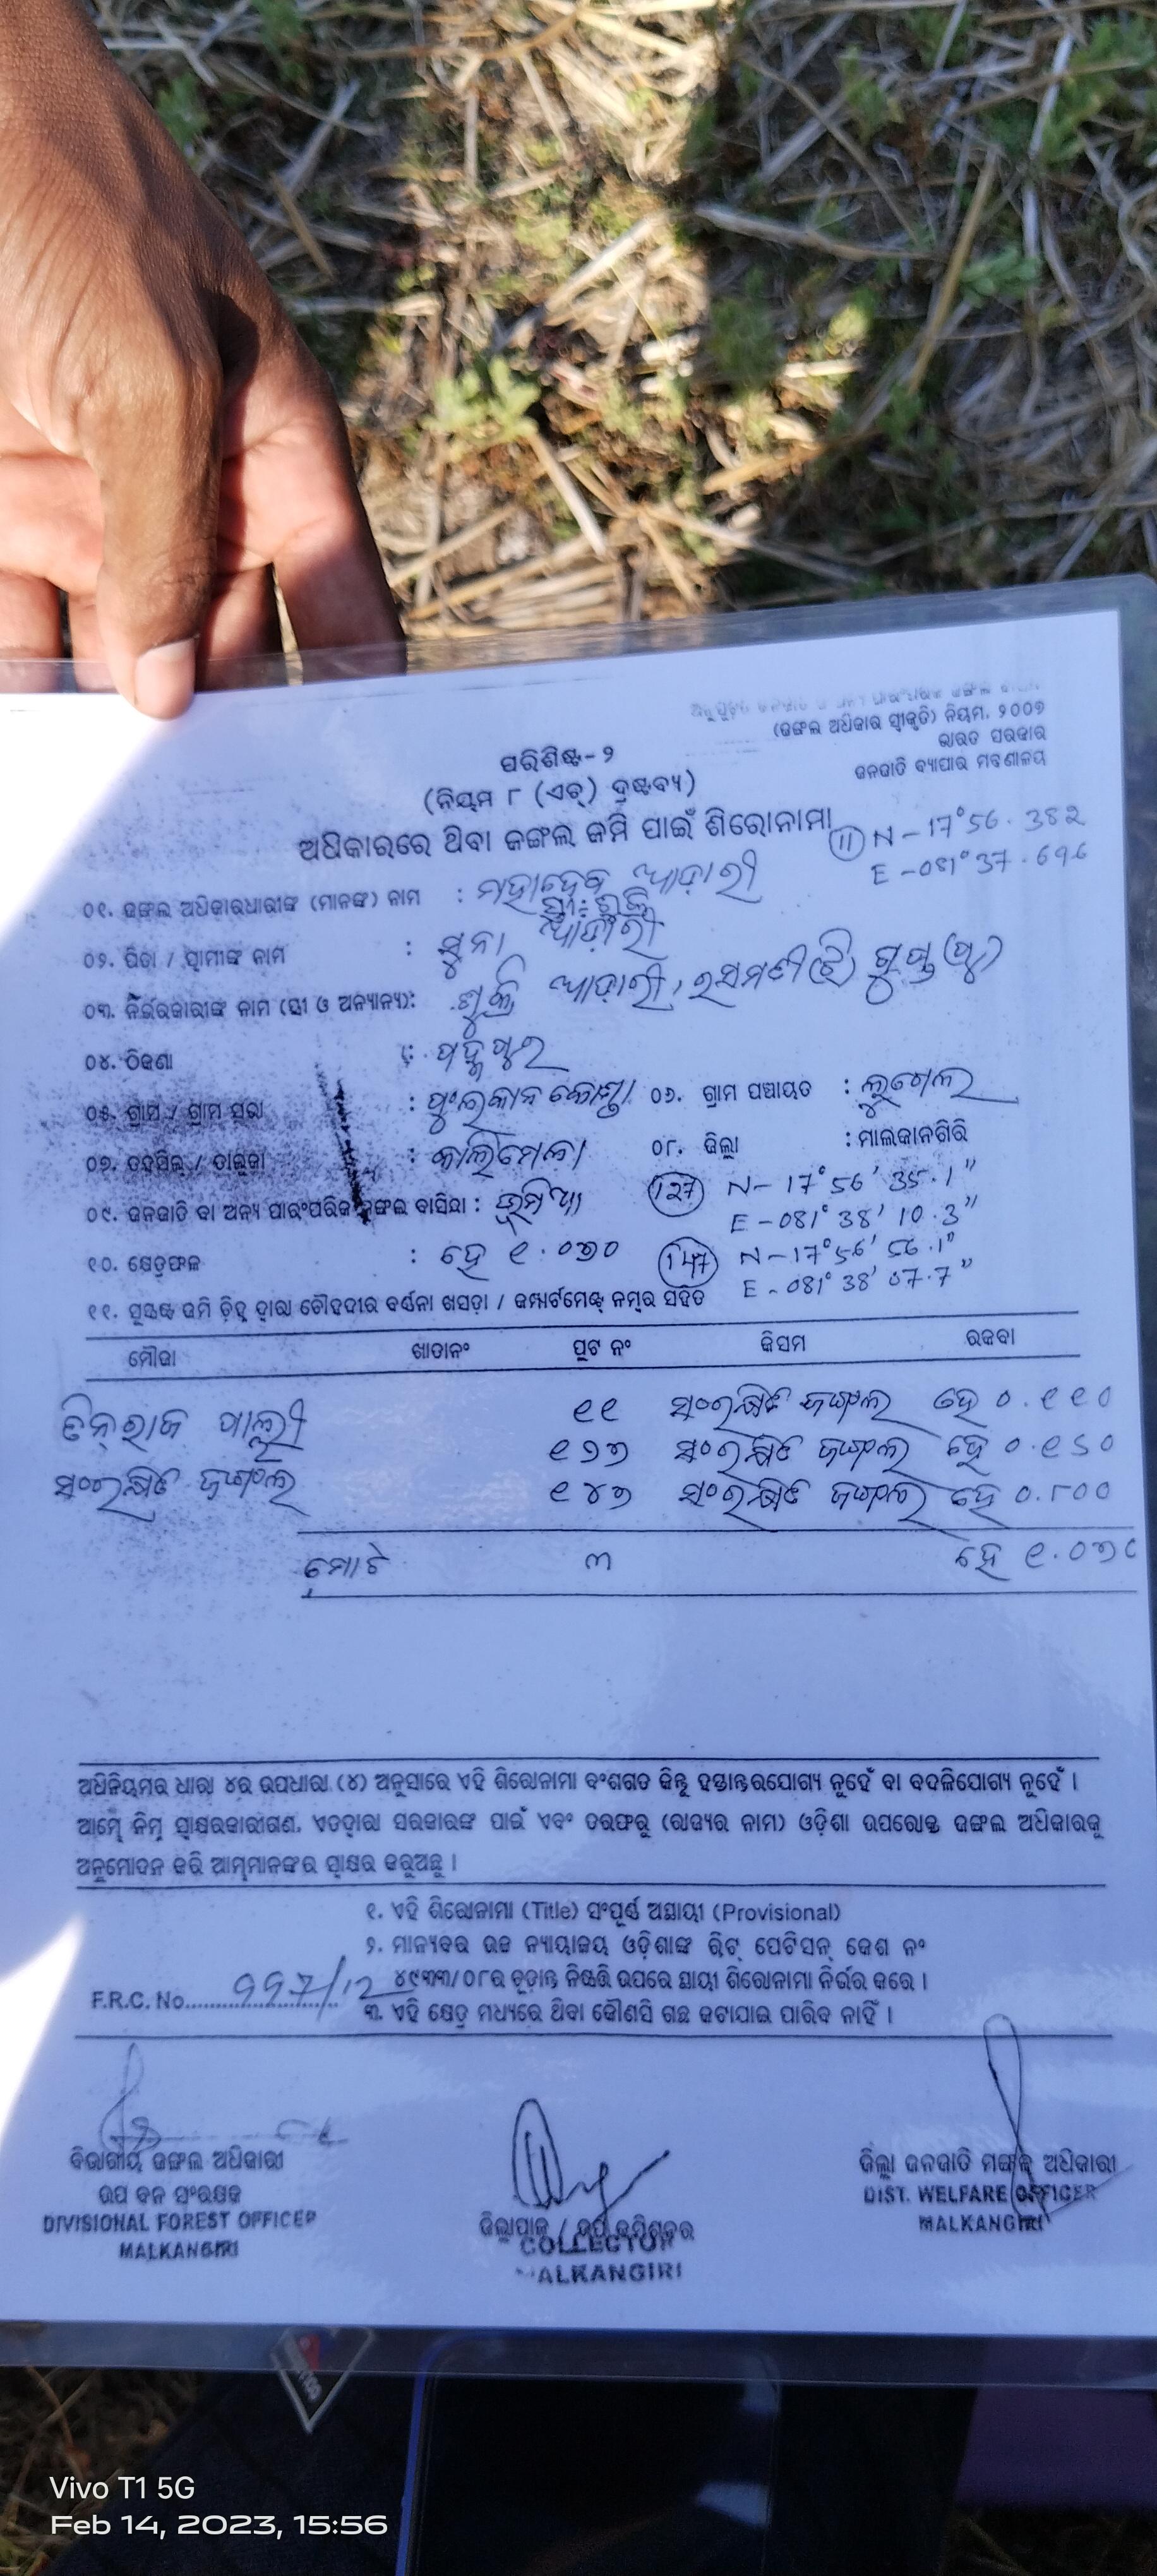 (ଜଙ୍ଗଲ ଅଧିକାର ସ୍ୱୀକୃତି) ନିୟମ, ୨୦୦୭
ଭାରତ ସରକାର
ଜନଜାତି ବ୍ୟାପାର ମନ୍ତ୍ରଣାଳୟ
ପରିଶିଷ୍ଟ-୨
(ନିୟମ ୮ (ଏଚ୍) ଦ୍ରଷ୍ଟବ୍ୟ)
ଅଧିକାରରେ ଥିବା ଜଙ୍ଗଲ ଜମି ପାଇଁ ଶିରୋନାମା
11 N - 17°56.382
E - 081°37.696
୦୧. ଜଙ୍ଗଲ ଅଧିକାରଧାରୀଙ୍କ (ମାନଙ୍କ) ନାମ : ମହାଦେବ
୦୨. ପିତା / ସ୍ୱାମୀଙ୍କ ନାମ : ସୁନା
୦୩. ନିର୍ଭରକାରୀଙ୍କ ନାମ (ସ୍ତ୍ରୀ ଓ ଅନ୍ୟାନ୍ୟ):
୦୪. ଠିକଣା : ପଦ୍ମପୁର
୦୫. ଗ୍ରାମ / ଗ୍ରାମ ସଭା : ୦୬. ଗ୍ରାମ ପଞ୍ଚାୟତ : ଲୁଗେଲ
୦୭. ତହସିଲ୍ / ତାଲୁକା : କାଲିମେଳା ୦୮. ଜିଲ୍ଲା : ମାଲକାନଗିରି
୦୯. ଜନଜାତି ବା ଅନ୍ୟ ପାରଂପରିକ ଜଙ୍ଗଲ ବାସିନ୍ଦା : ଭୂମିଆ 127 N- 17° 56' 35.1"
E - 081° 38' 10.3"
୧୦. କ୍ଷେତ୍ରଫଳ : ହେ ୧.୦୭୦ 147 N-17°56' 56.1"
E - 081° 38' 07.7"
୧୧. ସୁସ୍ପଷ୍ଟ ଜମି ଚିହ୍ନ ଦ୍ୱାରା ଚୌହଦୀର ବର୍ଣନା ଖସଡ଼ା / କମ୍ପାର୍ଟମେଣ୍ଟ୍ ନମ୍ବର ସହିତ
ମୌଜା ଖାତାନଂ ପ୍ଲଟ ନଂ କିସମ ରକବା
୧୧ ସଂରକ୍ଷିତ ଜଙ୍ଗଲ ହେ ୦.୧୧୦
୧୨୭ ସଂରକ୍ଷିତ ଜଙ୍ଗଲ ହେ ୦.୧୬୦
ସଂରକ୍ଷିତ ଜଙ୍ଗଲ ୧୪୭ ସଂରକ୍ଷିତ ଜଙ୍ଗଲ ହେ ୦.୮୦୦
ମୋଟ ୩ ହେ ୧.୦୭୦
ଅଧିନିୟମର ଧାରା ୪ର ଉପଧାରା (୪) ଅନୁସାରେ ଏହି ଶିରୋନାମା ବଂଶଗତ କିନ୍ତୁ ହସ୍ତାନ୍ତରଯୋଗ୍ୟ ନୁହେଁ ବା ବଦଳିଯୋଗ୍ୟ ନୁହେଁ ।
ଆମ୍ଭେ ନିମ୍ନ ସ୍ୱାକ୍ଷରକାରୀଗଣ, ଏତଦ୍ୱାରା ସରକାରଙ୍କ ପାଇଁ ଏବଂ ତରଫରୁ (ରାଜ୍ୟର ନାମ) ଓଡ଼ିଶା ଉପରୋକ୍ତ ଜଙ୍ଗଲ ଅଧିକାରକୁ
ଅନୁମୋଦନ କରି ଆମ୍ଭମାନଙ୍କର ସ୍ୱାକ୍ଷର କରୁଅଛୁ ।
୧. ଏହି ଶିରୋନାମା (Title) ସଂପୂର୍ଣ ଅସ୍ଥାୟୀ (Provisional)
୨. ମାନ୍ୟବର ଉଚ୍ଚ ନ୍ୟାୟାଳୟ ଓଡ଼ିଶାଙ୍କ ରିଟ୍ ପେଟିସନ୍ କେଶ ନଂ
୪୯୩୩/୦୮ର ଚୂଡ଼ାନ୍ତ ନିଷ୍ପତ୍ତି ଉପରେ ସ୍ଥାୟୀ ଶିରୋନାମା ନିର୍ଭର କରେ ।
F.R.C. No. 997/12
୩. ଏହି କ୍ଷେତ୍ର ମଧ୍ୟରେ ଥିବା କୌଣସି ଗଛ କଟାଯାଇ ପାରିବ ନାହିଁ ।
ବିଭାଗୀୟ ଜଙ୍ଗଲ ଅଧିକାରୀ
ଉପ ବନ ସଂରକ୍ଷକ
DIVISIONAL FOREST OFFICER
MALKANGIRI
ଜିଲ୍ଲାପାଳ / ଉପ କମିଶନର
COLLECTOR
MALKANGIRI
ଜିଲ୍ଲା ଜନଜାତି ମଙ୍ଗଳ ଅଧିକାରୀ
DIST. WELFARE OFFICER
MALKANGIRI
Vivo T1 5G
Feb 14, 2023, 15:56